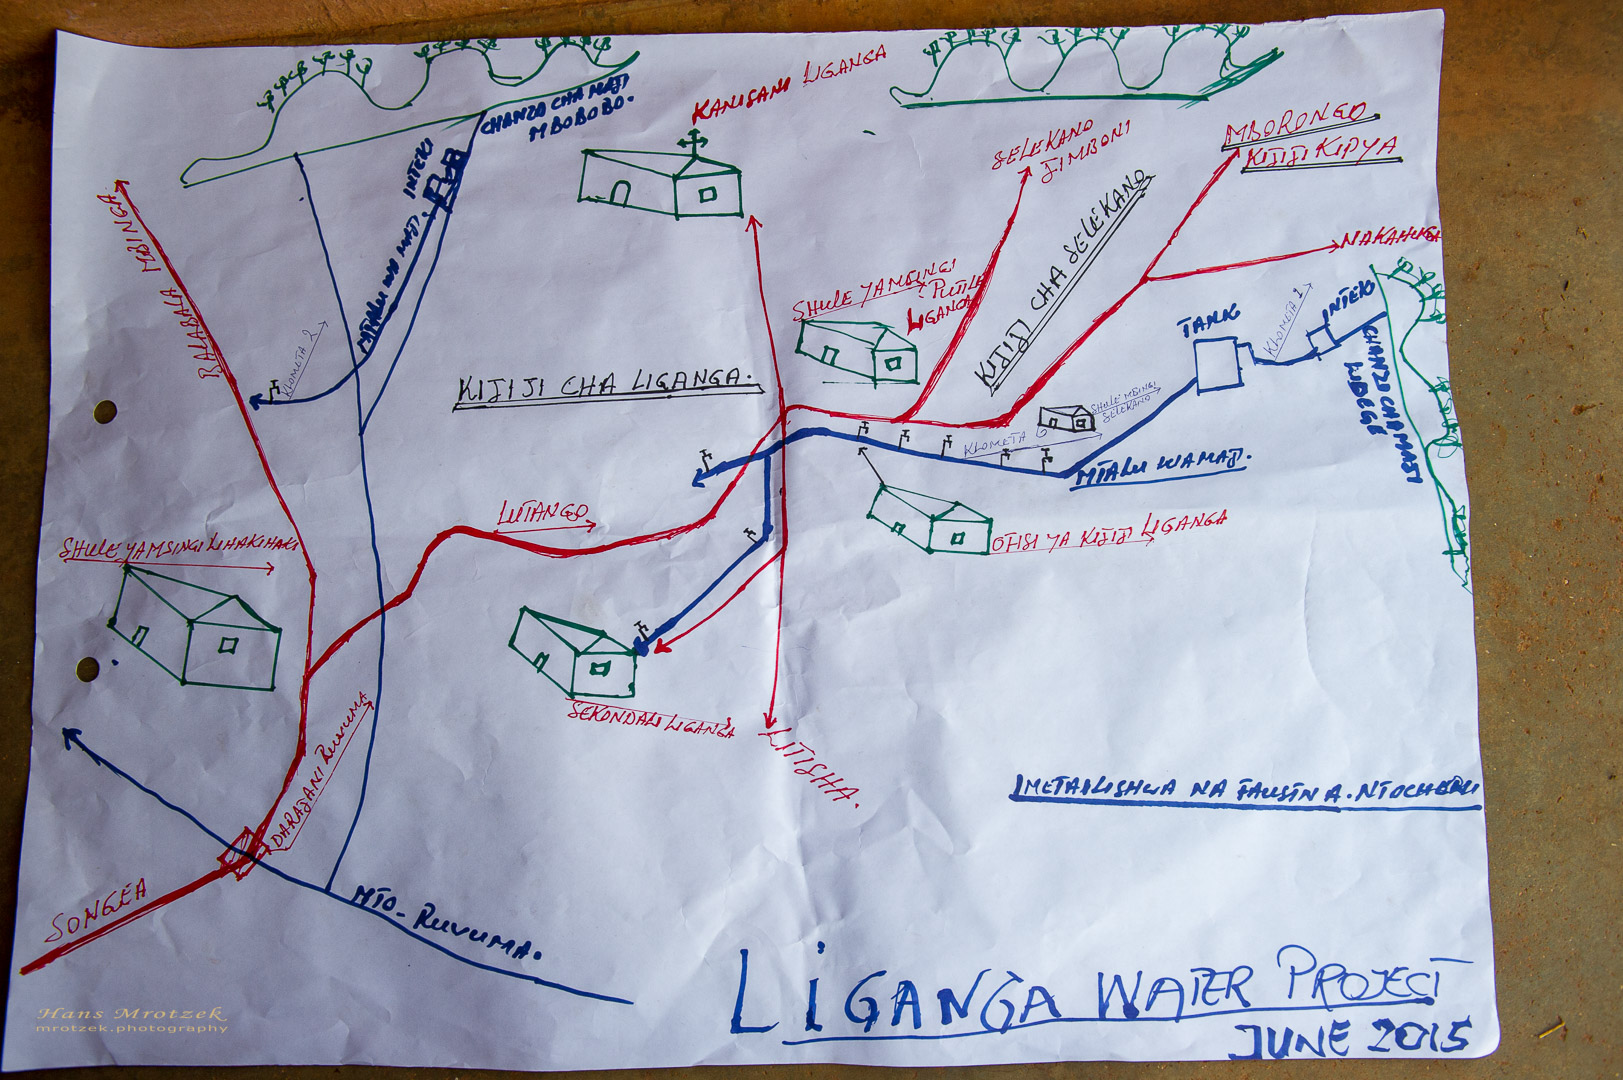 CHANZO CHA MAJI
MBOBOBO.
KANISANI LIGANGA
INTEKI
MTALU WA MAJI.
BALABALA MBINGA
KLOMETA 2
SELEKANO
JIMBONI
MBORONGO
KIJIJI KIPYA
NAKAHUGA
KIJIJI CHA SELEKANO
SHULE YAMSINGI
LIGANGA
TANK
INTEKI
CHANZO CHA MAJI
KIJIJI CHA LIGANGA.
SHULE MSINGI
SELEKANO
KLOMETA 6
MTALU WAMAJI.
LUTANGO
OFISI YA KIJIJI LIGANGA
SHULE YAMSINGI LIHAKIHAKI
SEKONDALI LIGANGA
LITISHA.
DARAJANI RUVUMA
SONGEA
MTO-RUVUMA.
LIGANGA WATER PROJECT
JUNE 2015
Hans Mrotzek
mrotzek.photography